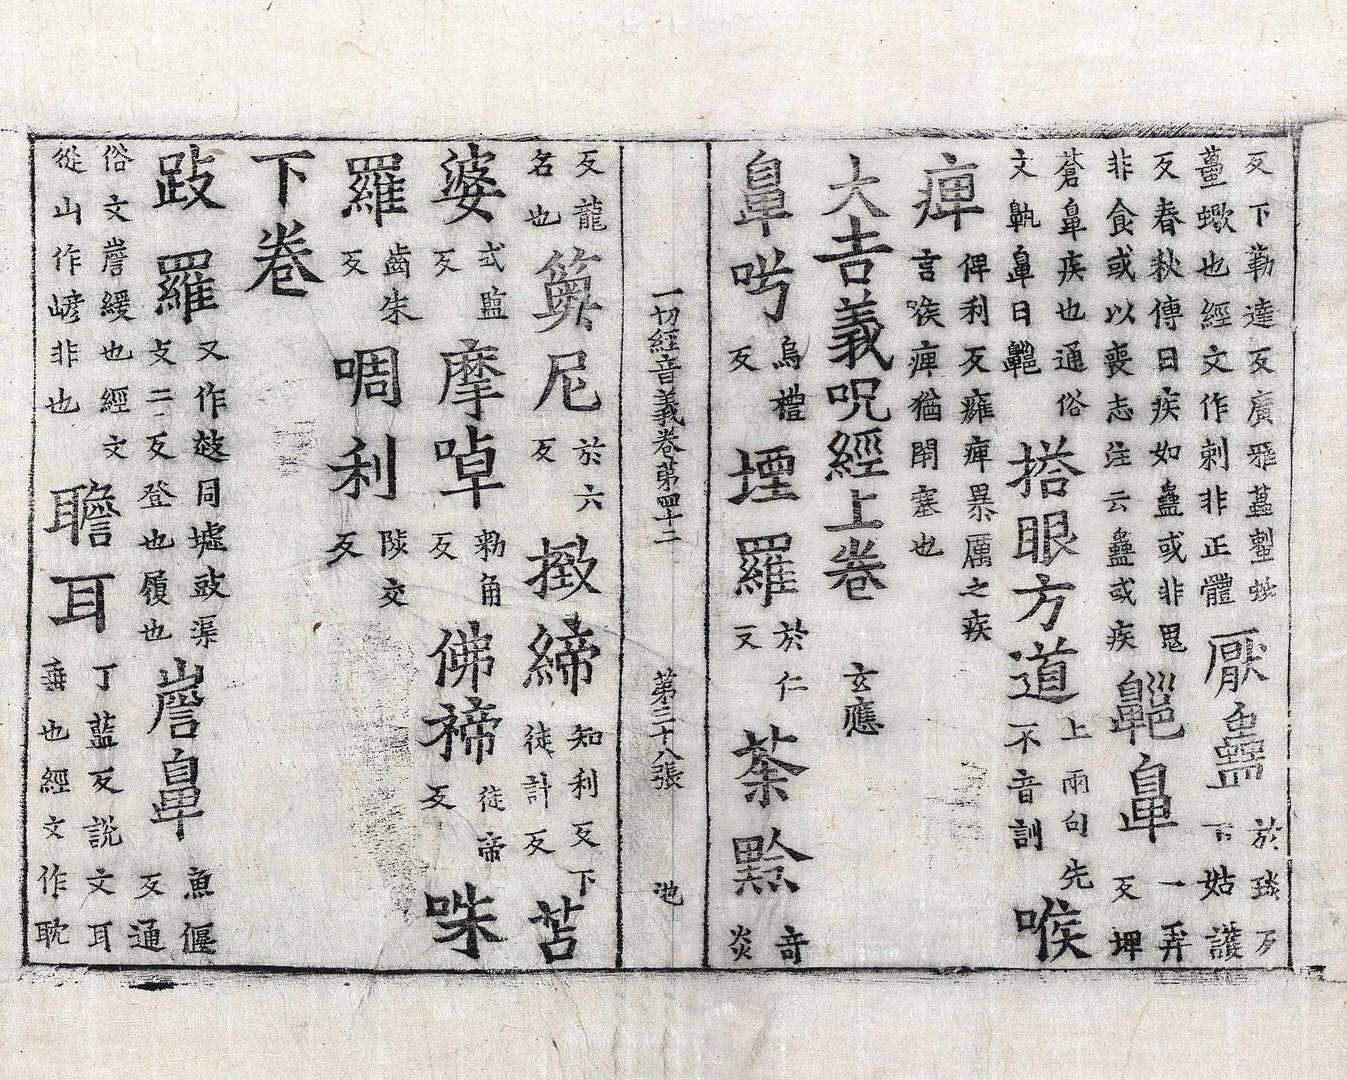 反下勒達反廣雅蠆蚔薑蠍也經文作剌非正體厭蠱於琰反下姑護
反春秋傳曰疾如蠱或非鬼非食或以喪志注云蠱或疾齆鼻一弄反埤
蒼鼻疾也通俗文鼽鼻曰齆搭眼方道上兩句先不音訓喉
痺俾利反癰痺暴厲之疾言喉痺猶閉塞也
大吉義呪經上卷 玄應
鼻烏禮反堙羅於仁反荼黔奇炎
一切經音義卷第四十二 第三十八張 池
反龍名也尼於六反緻締知利反下徒計反苫
婆式監反摩啅勑角反佛褅徒帝反咮
羅齒朱反啁利陟交反
下卷
跂羅又作同墟豉渠支二反登也履也鼻魚偃反通
俗文緩也經文從山作嵃非也聸耳丁藍反說文耳垂也經文作耽